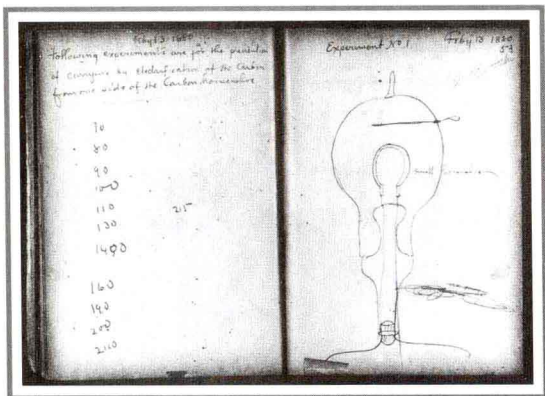 Feby 13 1880
Following experiments are for the prevention
of carrying by Electrification of the Carbon
from one side of the Carbon horseshoe
70
80
90
100
110 215
130
1490
160
190
200
Experiment No 1
Feby 13 1880
53
small